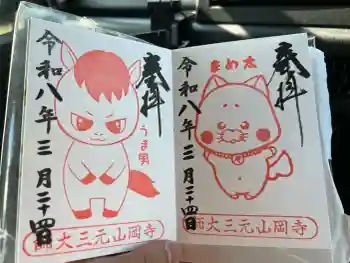 奉拝
うま男
令和八年三月二十四日
西大三元山岡寺
奉拝
まめ太
令和八年三月二十四日
西大三元山岡寺